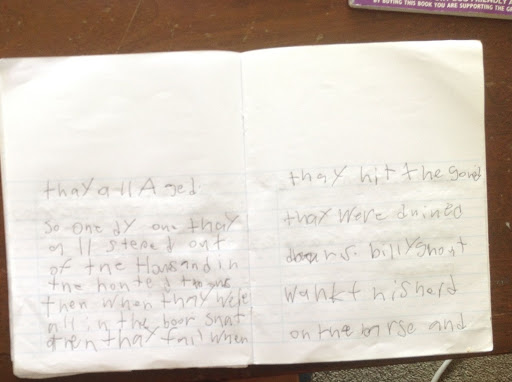 BY BUYING THIS BOOK YOU ARE SUPPORTING THE
thay all A ged.
So one dy one thay
all steped out
of the Hous and in
the honted
then when thay Were
all in the boor snat
then thay fail when
thay hit the
thay were
billy
his herd
on the barse and